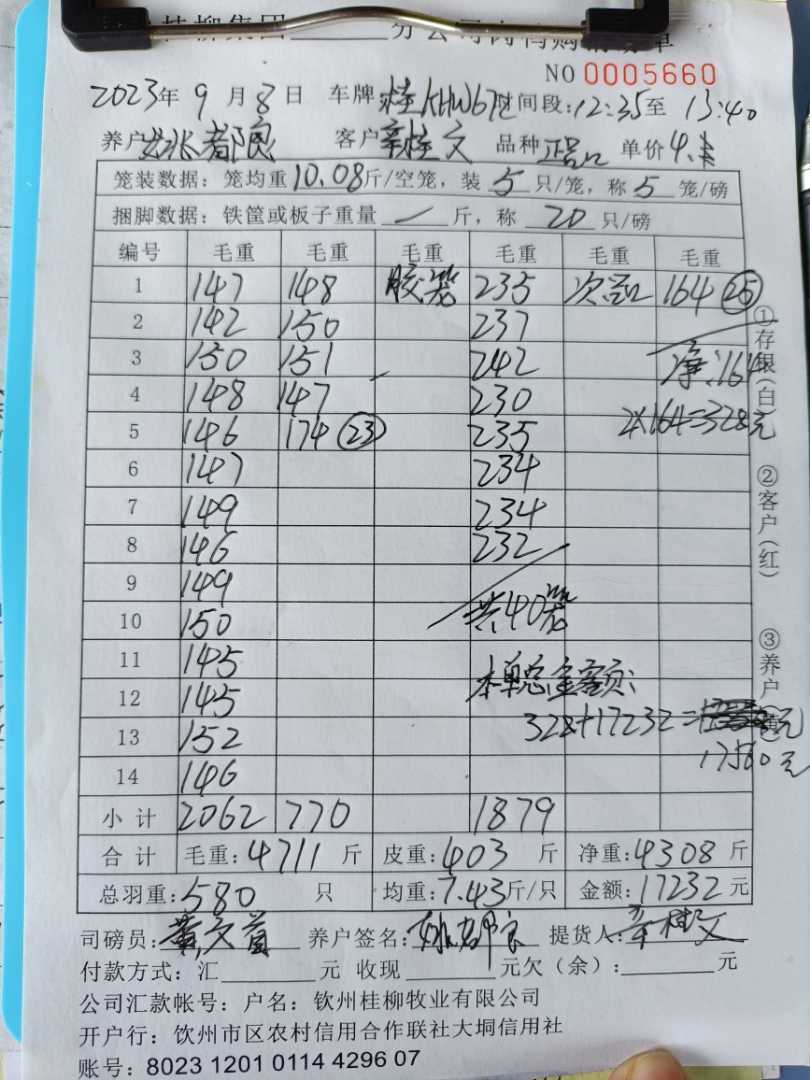 桂柳集团 分公司肉鸭购销磅单
NO 0005660
2023年 9 月 8 日 车牌:桂KHW67 时间段:12:35至 13:40
养户: 都良 客户 辛桂文 品种 正品 单价 4.
笼装数据:笼均重10.08斤/空笼,装 5 只/笼,称 5 笼/磅
捆脚数据:铁筐或板子重量 一 斤,称 20 只/磅
编号 毛重 毛重 毛重 毛重 毛重 毛重
1 147 148 胶笼 235 次品 164 (25)
2 142 150 237
3 150 151 242 净:164
4 148 147 230 2×164=328元
5 146 174 (23) 235
6 147 234
7 149 234
8 146 232
9 149
10 150 共40笼
11 145
12 145 本单总金额:
13 152 328+17232= 元
14 146 17560元
小计 2062 770 1879
合计 毛重:4711 斤 皮重:403 斤 净重:4308 斤
总羽重:580 只 均重:7.43斤/只 金额:17232 元
①存根(白)
②客户(红)
③养户
司磅员: 养户签名: 都良 提货人:辛桂文
付款方式:汇 元 收现 元欠(余): 元
公司汇款帐号:户名:钦州桂柳牧业有限公司
开户行:饮州市区农村信用合作联社大垌信用社
账号:8023 1201 0114 4296 07